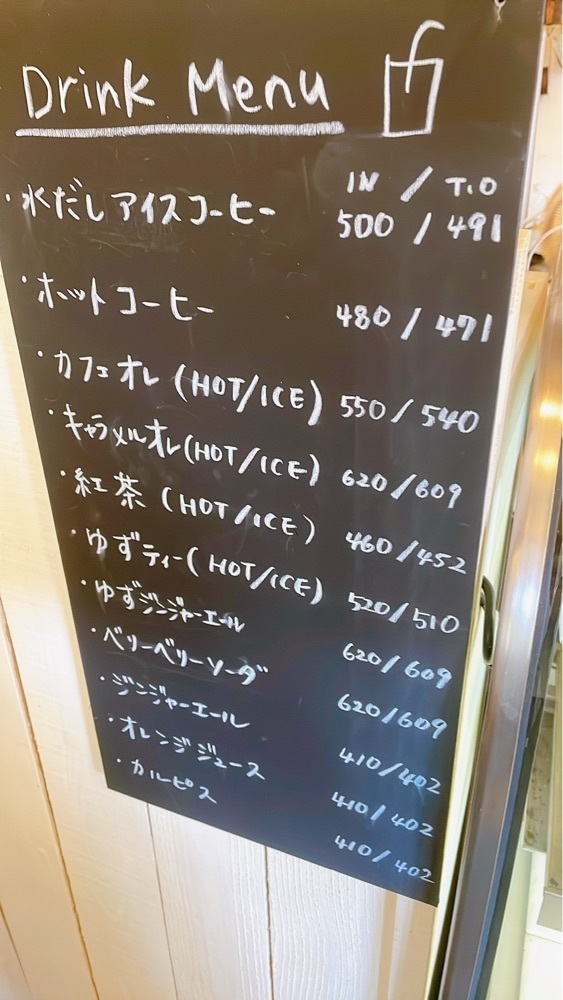 Drink Menu
IN / T.O
・水だしアイスコーヒー 500 / 491
・ホットコーヒー 480 / 471
・カフェオレ (HOT/ICE) 550 / 540
・キャラメルオレ(HOT/ICE) 620/609
・紅茶 (HOT/ICE) 460/452
・ゆずティー(HOT/ICE) 520/510
・ゆずジンジャーエール 620/609
・ベリーベリーソーダ 620/609
・ジンジャーエール 410/402
・オレンジジュース 410/402
・カルピス 410/402